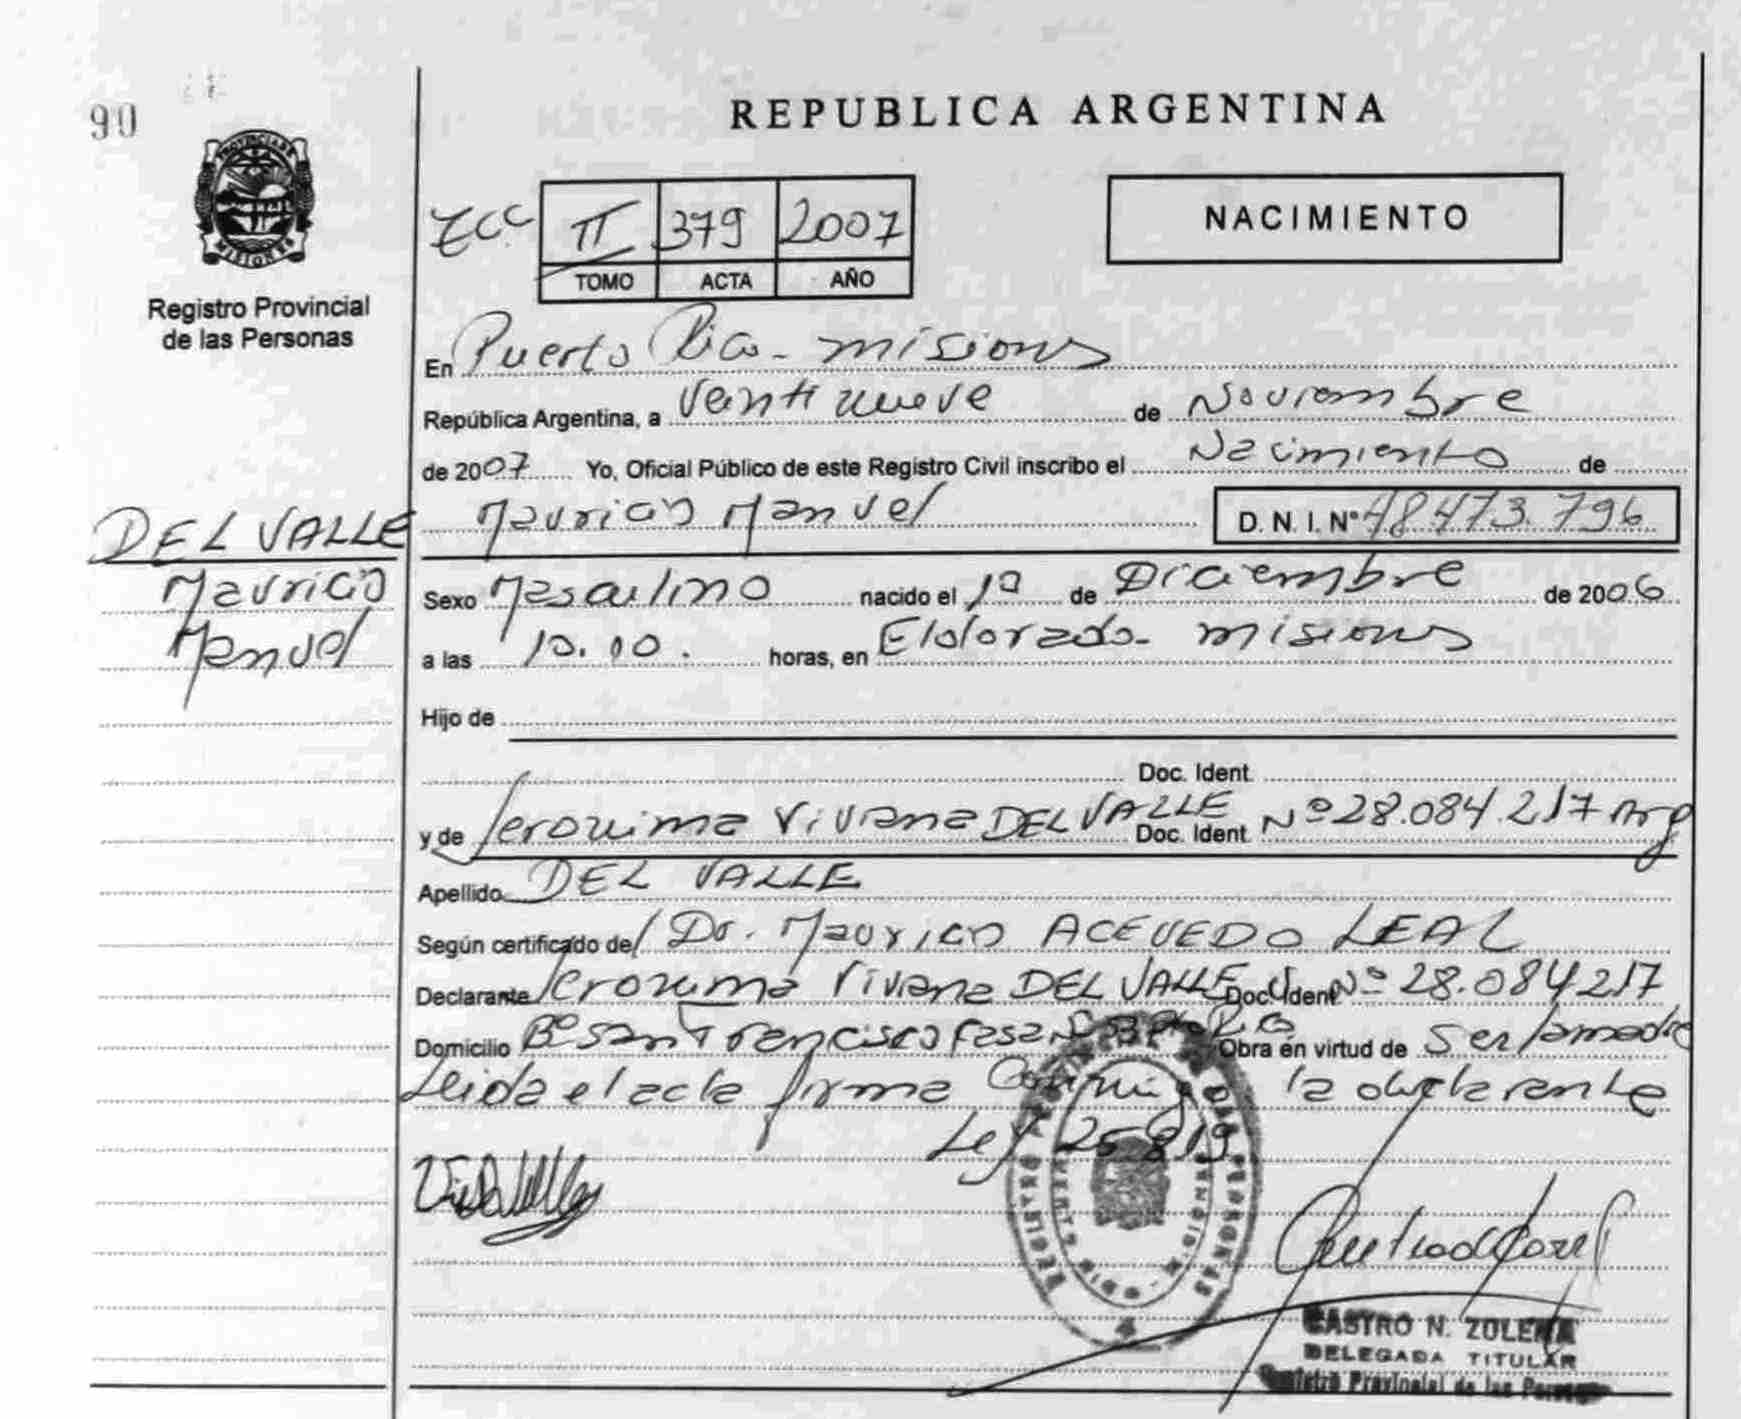 90
REPUBLICA ARGENTINA
PROVINCIA DE
MISIONES
Registro Provincial
de las Personas
II 379 2007
TOMO ACTA AÑO
NACIMIENTO
En Puerto Rico - misiones
República Argentina, a Veintinueve de Noviembre
de 2007 Yo, Oficial Público de este Registro Civil inscribo el Nacimiento de
Mauricio Manuel D. N. I. Nº 48473.796
DEL VALLE
Mauricio
Manuel
Sexo Masculino nacido el de Diciembre de 2006
a las horas, en Eldorado - misiones
Hijo de
Doc. Ident.
y de Jeronima Viviana DEL VALLE Doc. Ident. Nº 28.084.217 Arg
Apellido DEL VALLE
Según certificado del Dr. Mauricio ACEVEDO LEAL
Declarante Jeronima Viviana DEL VALLE Doc. Ident Nº 28.084217
Domicilio Bº San Francisco Obra en virtud de Ser la madre
Leida el acta firma Conmigo la declarante
Ley 25819
CASTRO N. ZULEMA
DELEGADA TITULAR
Registro Provincial de las Personas